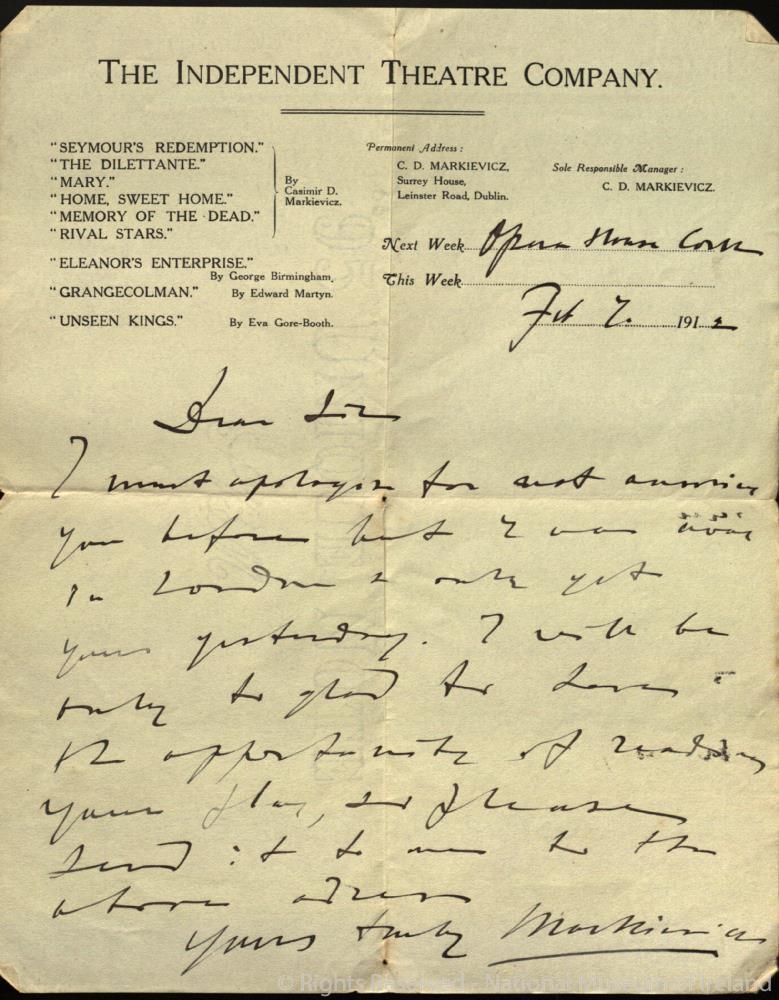 THE INDEPENDENT THEATRE COMPANY.
"SEYMOUR'S REDEMPTION."
"THE DILETTANTE."
"MARY."
"HOME, SWEET HOME."
"MEMORY OF THE DEAD."
"RIVAL STARS."
By
Casimir D.
Markievicz.
"ELEANOR'S ENTERPRISE."
By George Birmingham.
"GRANGECOLMAN." By Edward Martyn.
"UNSEEN KINGS." By Eva Gore-Booth.
Permanent Address :
C. D. MARKIEVICZ,
Surrey House,
Leinster Road, Dublin.
Sole Responsible Manager :
C. D. MARKIEVICZ.
Next Week Opera House Cork
This Week
Feb 7. 1912
Dear Sir
I must apologise for not
you before but I was away
in London & only got
yours yesterday. I will be
only to glad to have
the opportunity of reading
your play, so please
send it to me to the
above adress
Yours truly Markievicz
© Rights Reserved - National Museum of Ireland